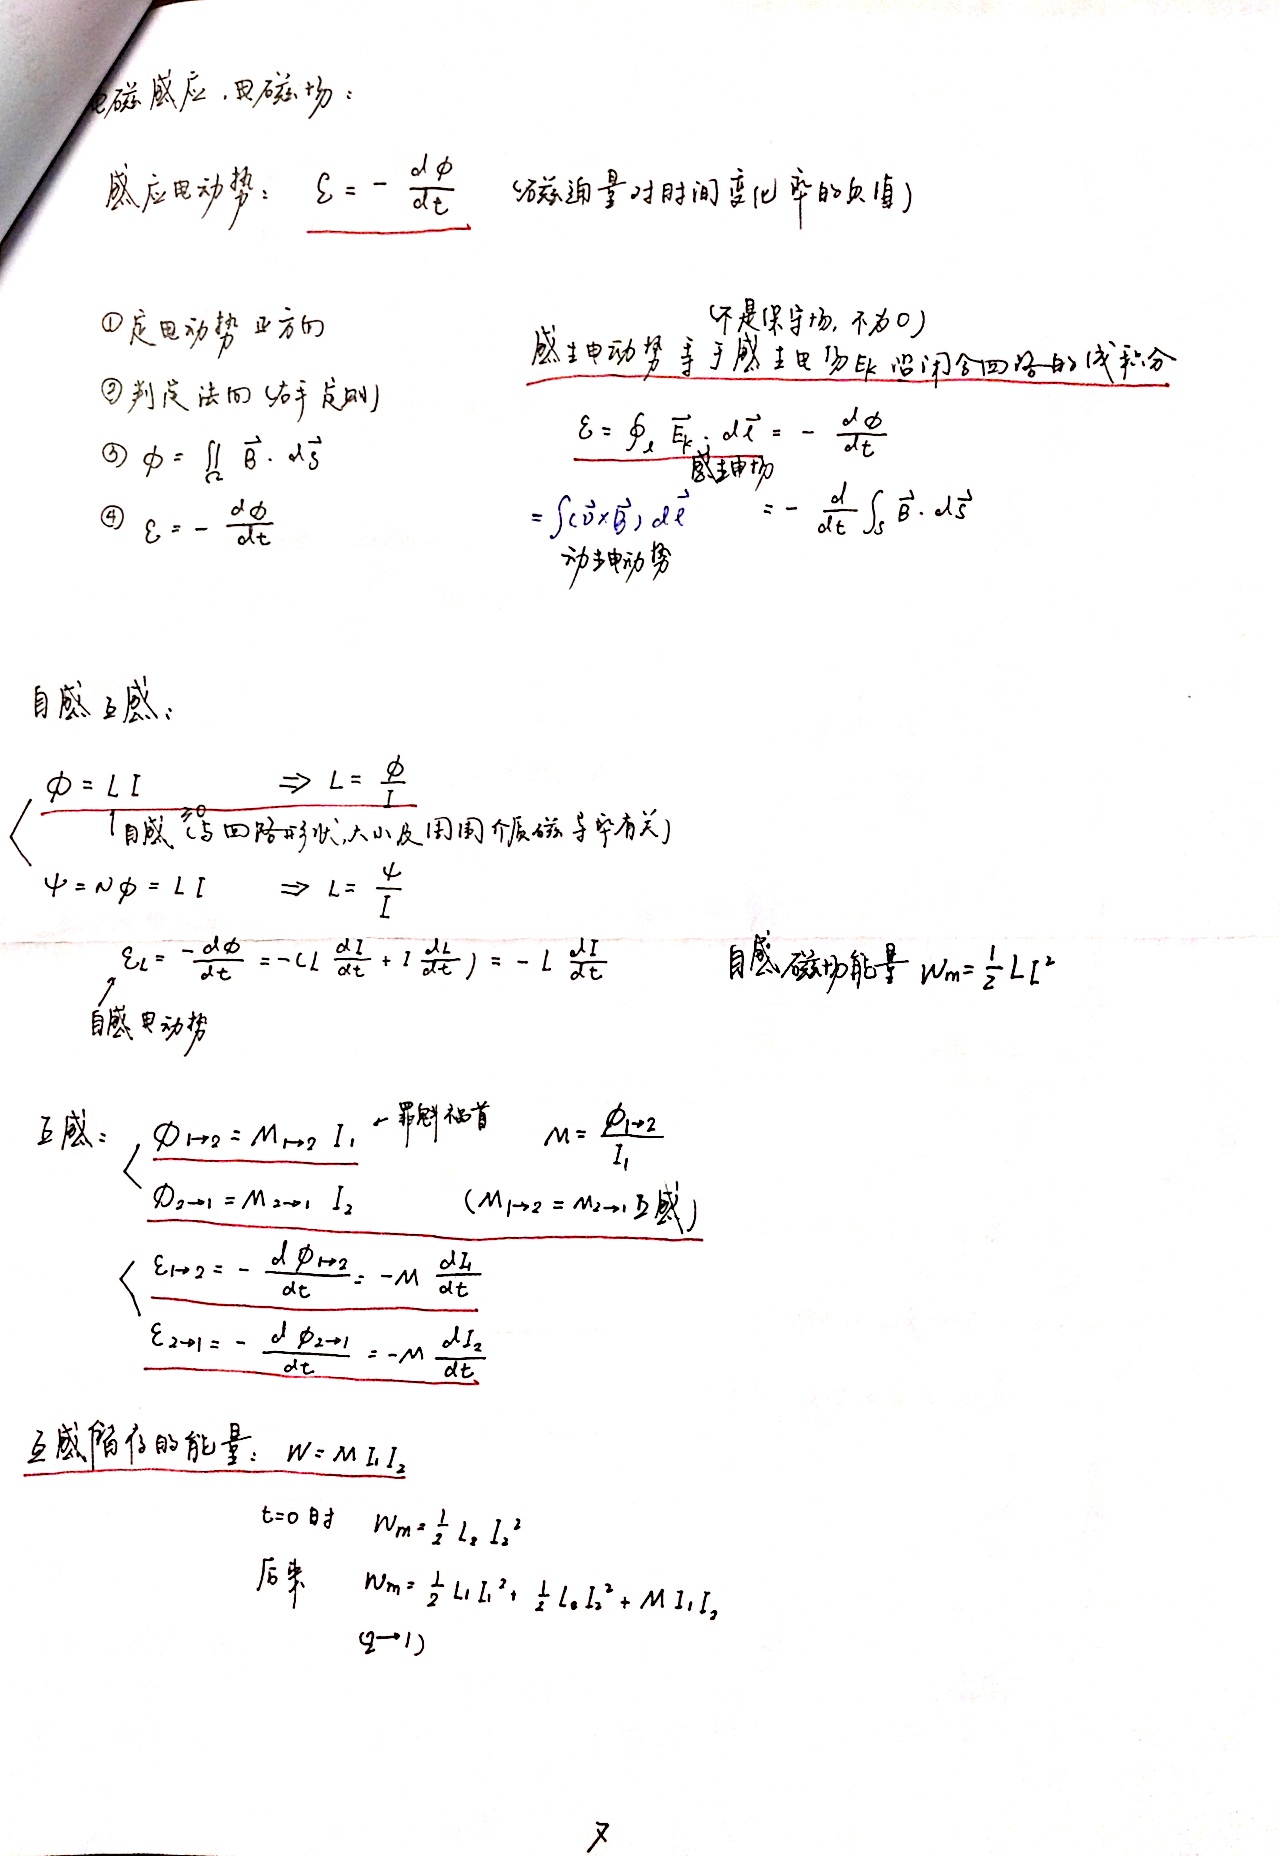 电磁感应.电磁场:
感应电动势: ε = - dφ/dt (磁通量对时间变化率的负值)
① 定电动势正方向
② 判定法向(右手定则)
③ φ = ∬_Ω B⃗ · dS⃗
④ ε = - dφ/dt
(不是保守场, 不为0)
感生电动势等于感生电场Ek沿闭合回路的线积分
ε = ∮_l E⃗k · dl⃗ = - dφ/dt
感生电场
= ∫(v⃗×B⃗) dl⃗ = - d/dt ∫_S B⃗ · dS⃗
动生电动势
自感互感:
φ = L I ⇒ L = φ/I
↑自感 ≥0 (与回路形状,大小及周围介质磁导率有关)
ψ = Nφ = L I ⇒ L = ψ/I
ε_L = -dφ/dt = -(L dI/dt + I dL/dt) = - L dI/dt
自感电动势
自感磁场能量 Wm = 1/2 L I²
互感: φ1→2 = M1→2 I₁ ← 罪魁祸首 M = φ1→2/I₁
φ2→1 = M2→1 I₂ (M1→2 = M2→1 互感)
ε1→2 = - dφ1→2/dt = -M dI₁/dt
ε2→1 = - dφ2→1/dt = -M dI₂/dt
互感储存的能量: W = M I₁ I₂
t=0时 Wm = 1/2 L₂ I₂²
后来 Wm = 1/2 L₁ I₁² + 1/2 L₂ I₂² + M I₁ I₂
(2→1)
7